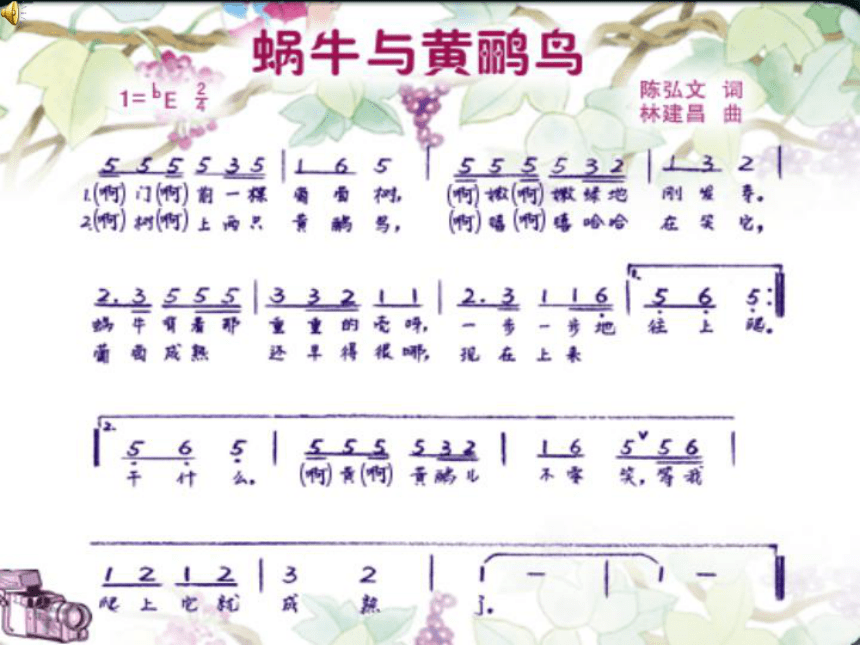 蜗牛与黄鹂鸟
1=♭E 2/4
陈弘文 词
林建昌 曲
5 5 5 5 3 5 | 1 6 5 | 5 5 5 5 3 2 | 1 3 2 |
1.(啊)门(啊)前一棵 葡萄树, (啊)嫩(啊)嫩绿地 刚发芽。
2.(啊)树(啊)上两只 黄鹂鸟, (啊)嘻(啊)嘻哈哈 在笑它,
2. 3 5 5 5 | 3 3 2 1 1 | 2. 3 1 1 6 | 1. 5 6 5 :|
蜗牛背着那 重重的壳呀, 一步一步地 往上爬。
葡萄成熟 还早得很哪, 现在上来
2. 5 6 5 | 5 5 5 5 3 2 | 1 6 5 ∨ 5 6 |
干什么。 (啊)黄(啊)黄鹂儿 不要笑, 等我
1 2 1 2 | 3 2 | 1 — | 1 — ‖
爬上它就 成熟 了。